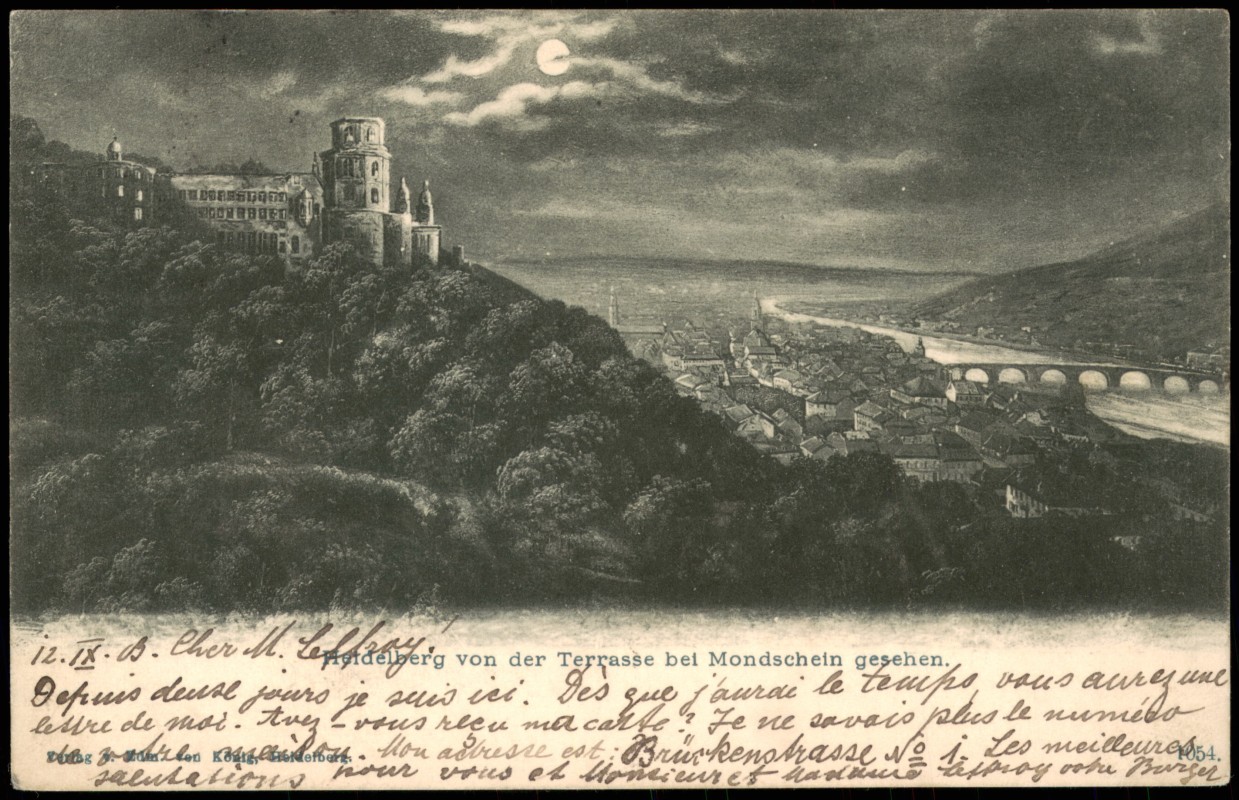 12. IX. 03. Cher M. Leffroy!
Heidelberg von der Terrasse bei Mondschein gesehen.
Depuis deuse jours je suis ici. Dès que j'aurai le temps, vous aurez une
lettre de moi. Avez-vous reçu ma carte? Je ne savais plus le numéro
de votre maison. Mon adresse est: Brückenstrasse No 1. Les meilleures
Verlag v. Edm. von König, Heidelberg.
1054.
salutations pour vous et Monsieur et Madame Leffroy votre Burger